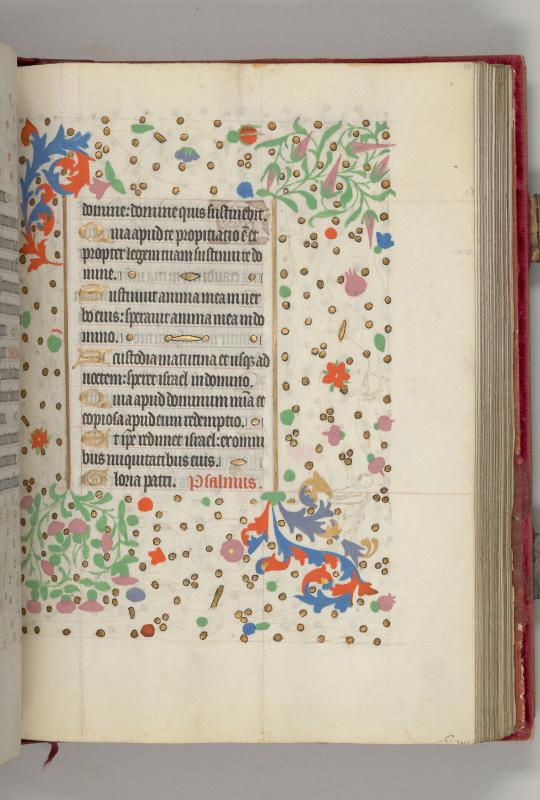 domine: domine quis sustinebit.
Quia apud te propitiatio e et
propter legem tuam sustinui te do
mine.
Sustinuit anima mea in ver
bo eius: speravit anima mea in do
mino.
A custodia matutina et usq; ad
noctem: speret israel in domino.
Quia apud dominum mia et
copiosa apud eum redemptio.
Et ipe redimet israel: ex omni
bus iniquitatibus eius.
Gloria patri. Psalmus.